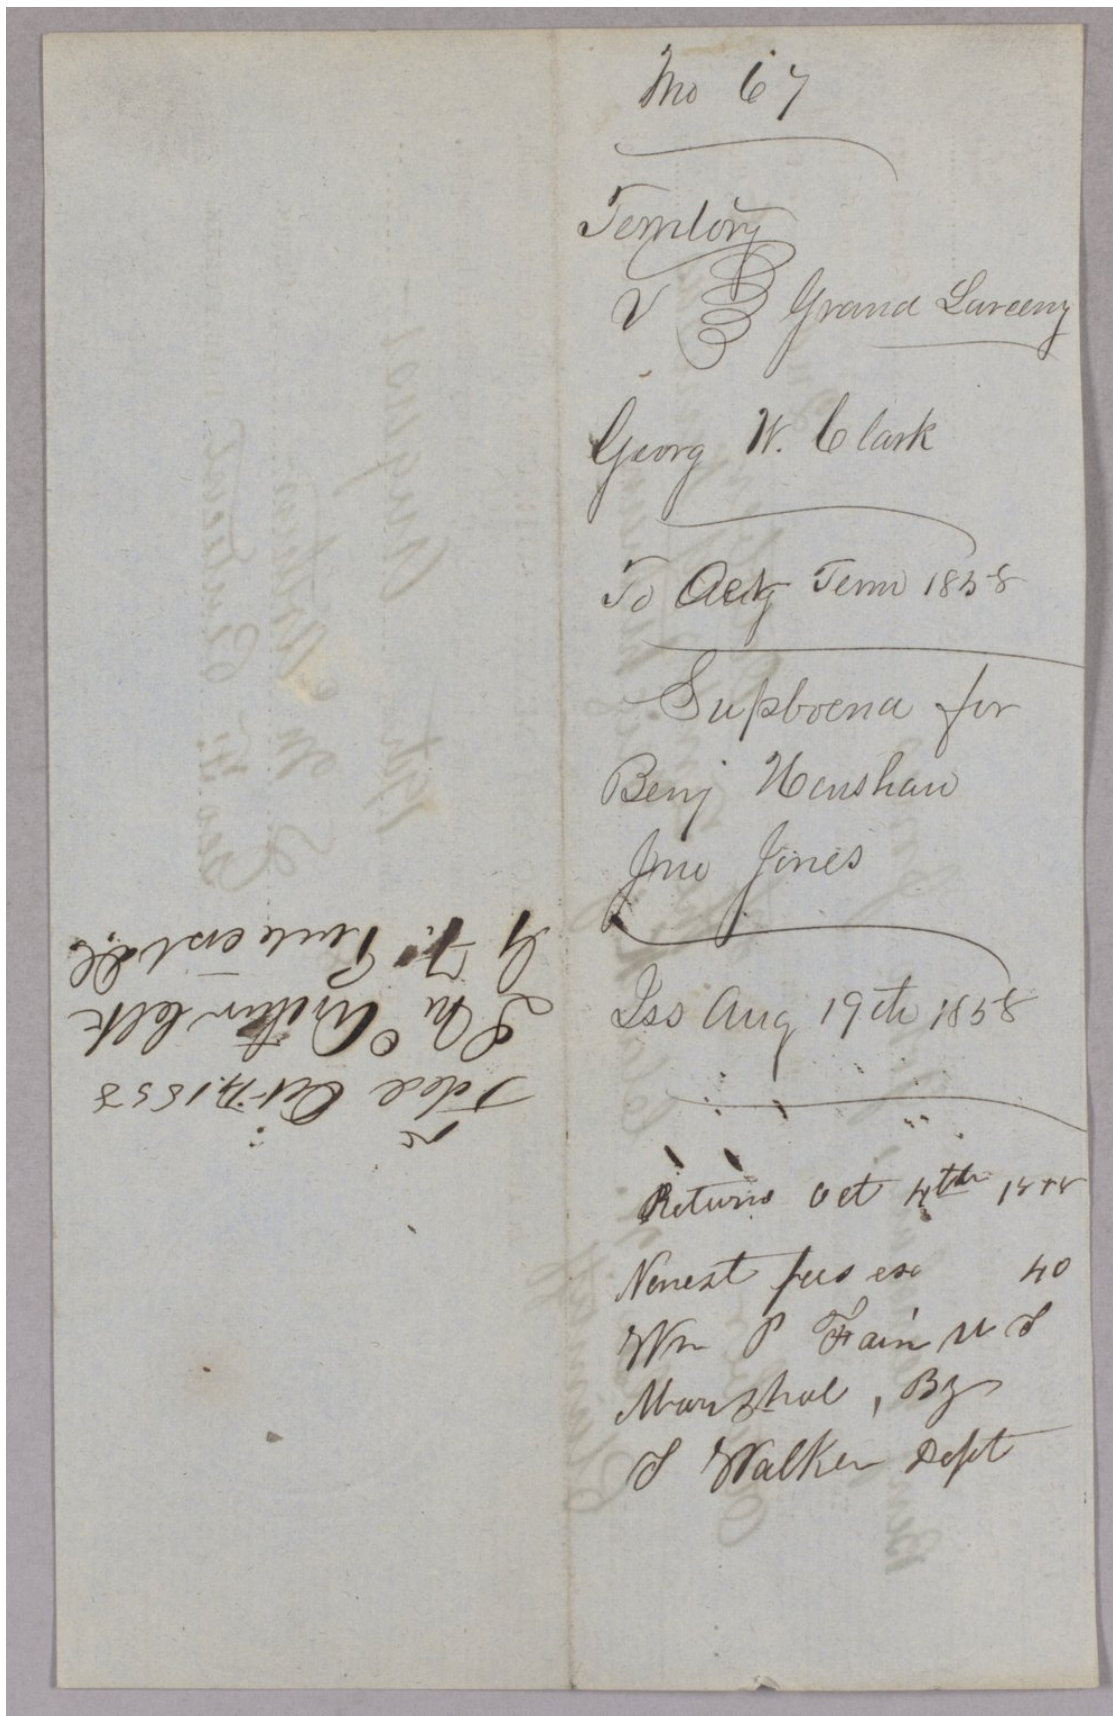 No 67
Territory
V } Grand Larceny
Georg W. Clark
To Oct Term 1858
Supboena for
Benj Henshaw
Jno Jones
Iss Aug 19th 1858
Return Oct 4th 1858
Nonest fees exe 40
Wm P Fain U S
Marshal, By
S Walker Dept
Filed Oct 4, 1858
L Mc Arthur Clk
By